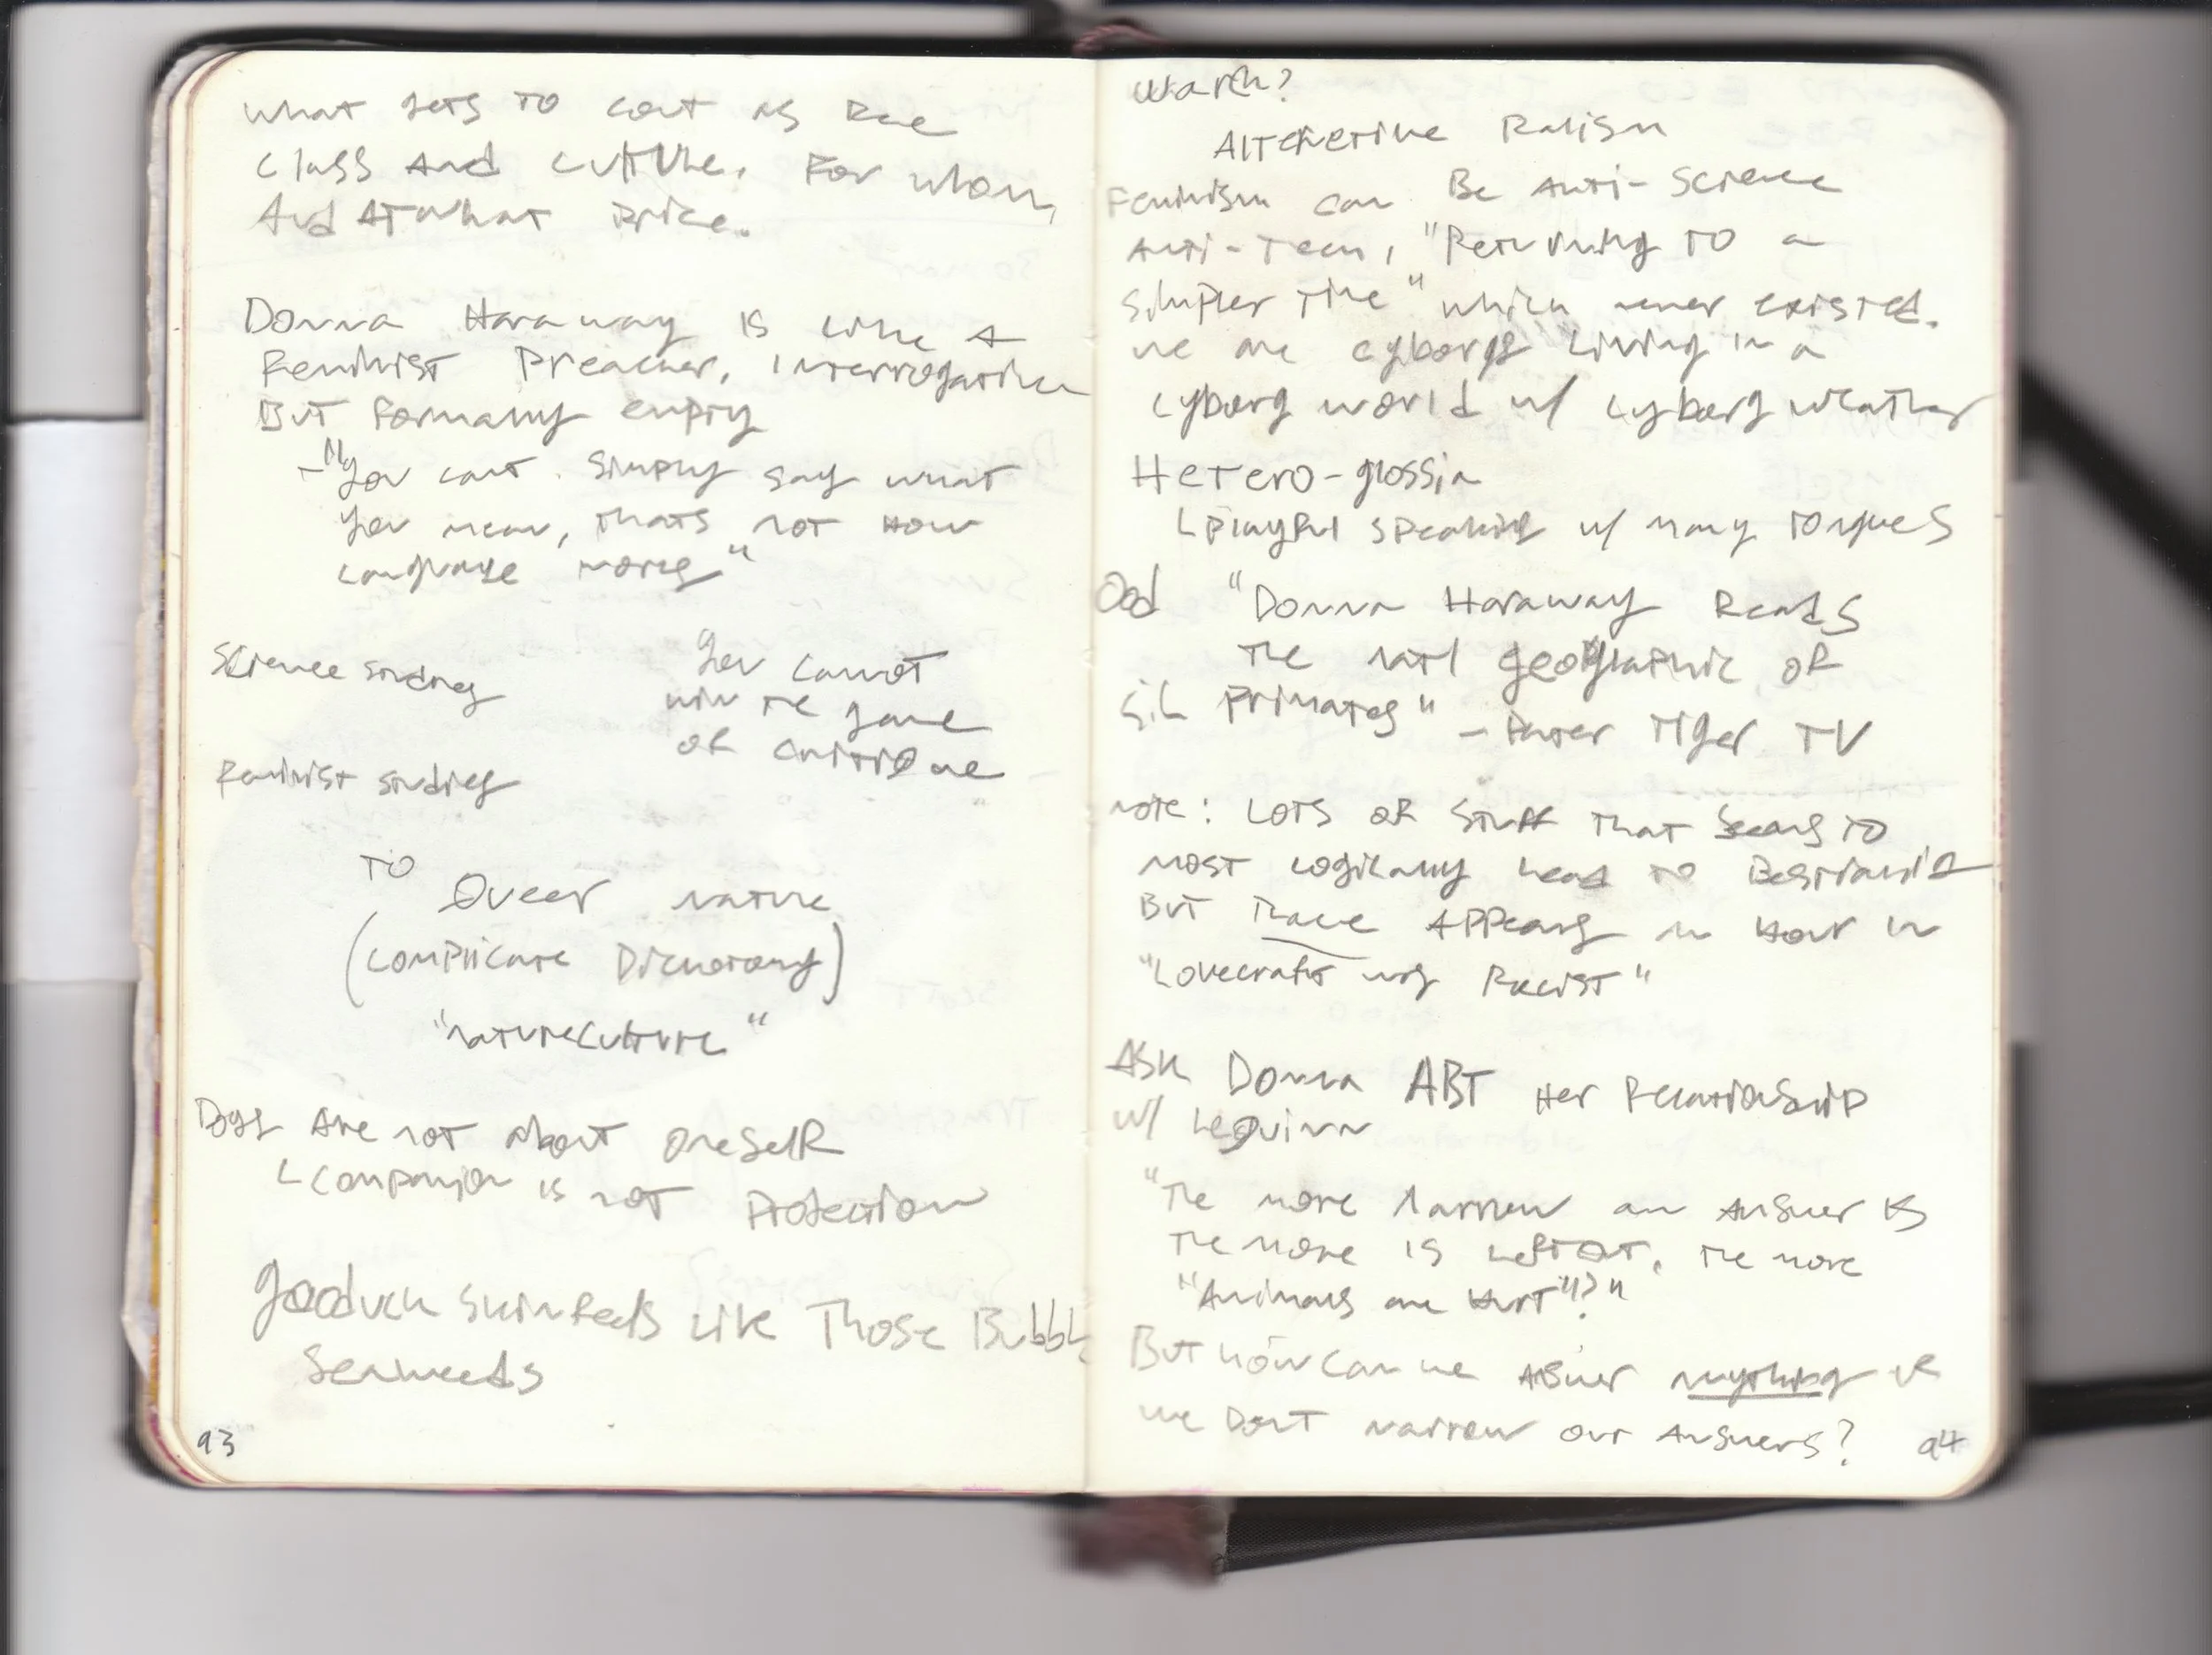 What gets to cout as Race
Class And Culture. For whom,
And AT what Price.
Donna Haraway is like A
Feminist Preacher, interrogative
But Formally empty
- "You can't simply say what
you mean, thats not How
language moves"
Science studies
"You cannot
win the game
of critique
Feminist studies
TO
Queer nature
(complicate Dichotomy)
"natureculture"
Dogs Are not about oneself
L companion is not Protection
geoduck skin feels Like Those Bubbly
Seaweeds
93
Wark?
Alterative Ralism
Feminism can Be Anti-Science
Anti-Tech, "Returning to a
simpler time" which never existed.
we are cyborgs Living in a
cyborg world w/ cyborg weather
Hetero-glossia
L playful speaking w/ many tongues
Odd "Donna Haraway Reads
The Nat'l geographic of
Primates" - Paper Tiger TV
note: Lots of stuff that Seems TO
most Logically lead to Bestiality
But None Appears
"Lovecraft was Racist"
Ask Donna ABT Her Relationship
w/ Leguinn
"The more narrow an Answer is
The more is Left out. The more
"Animals are Hurt"?"
But how can we Answer anything if
we Don't narrow our Answers?
94